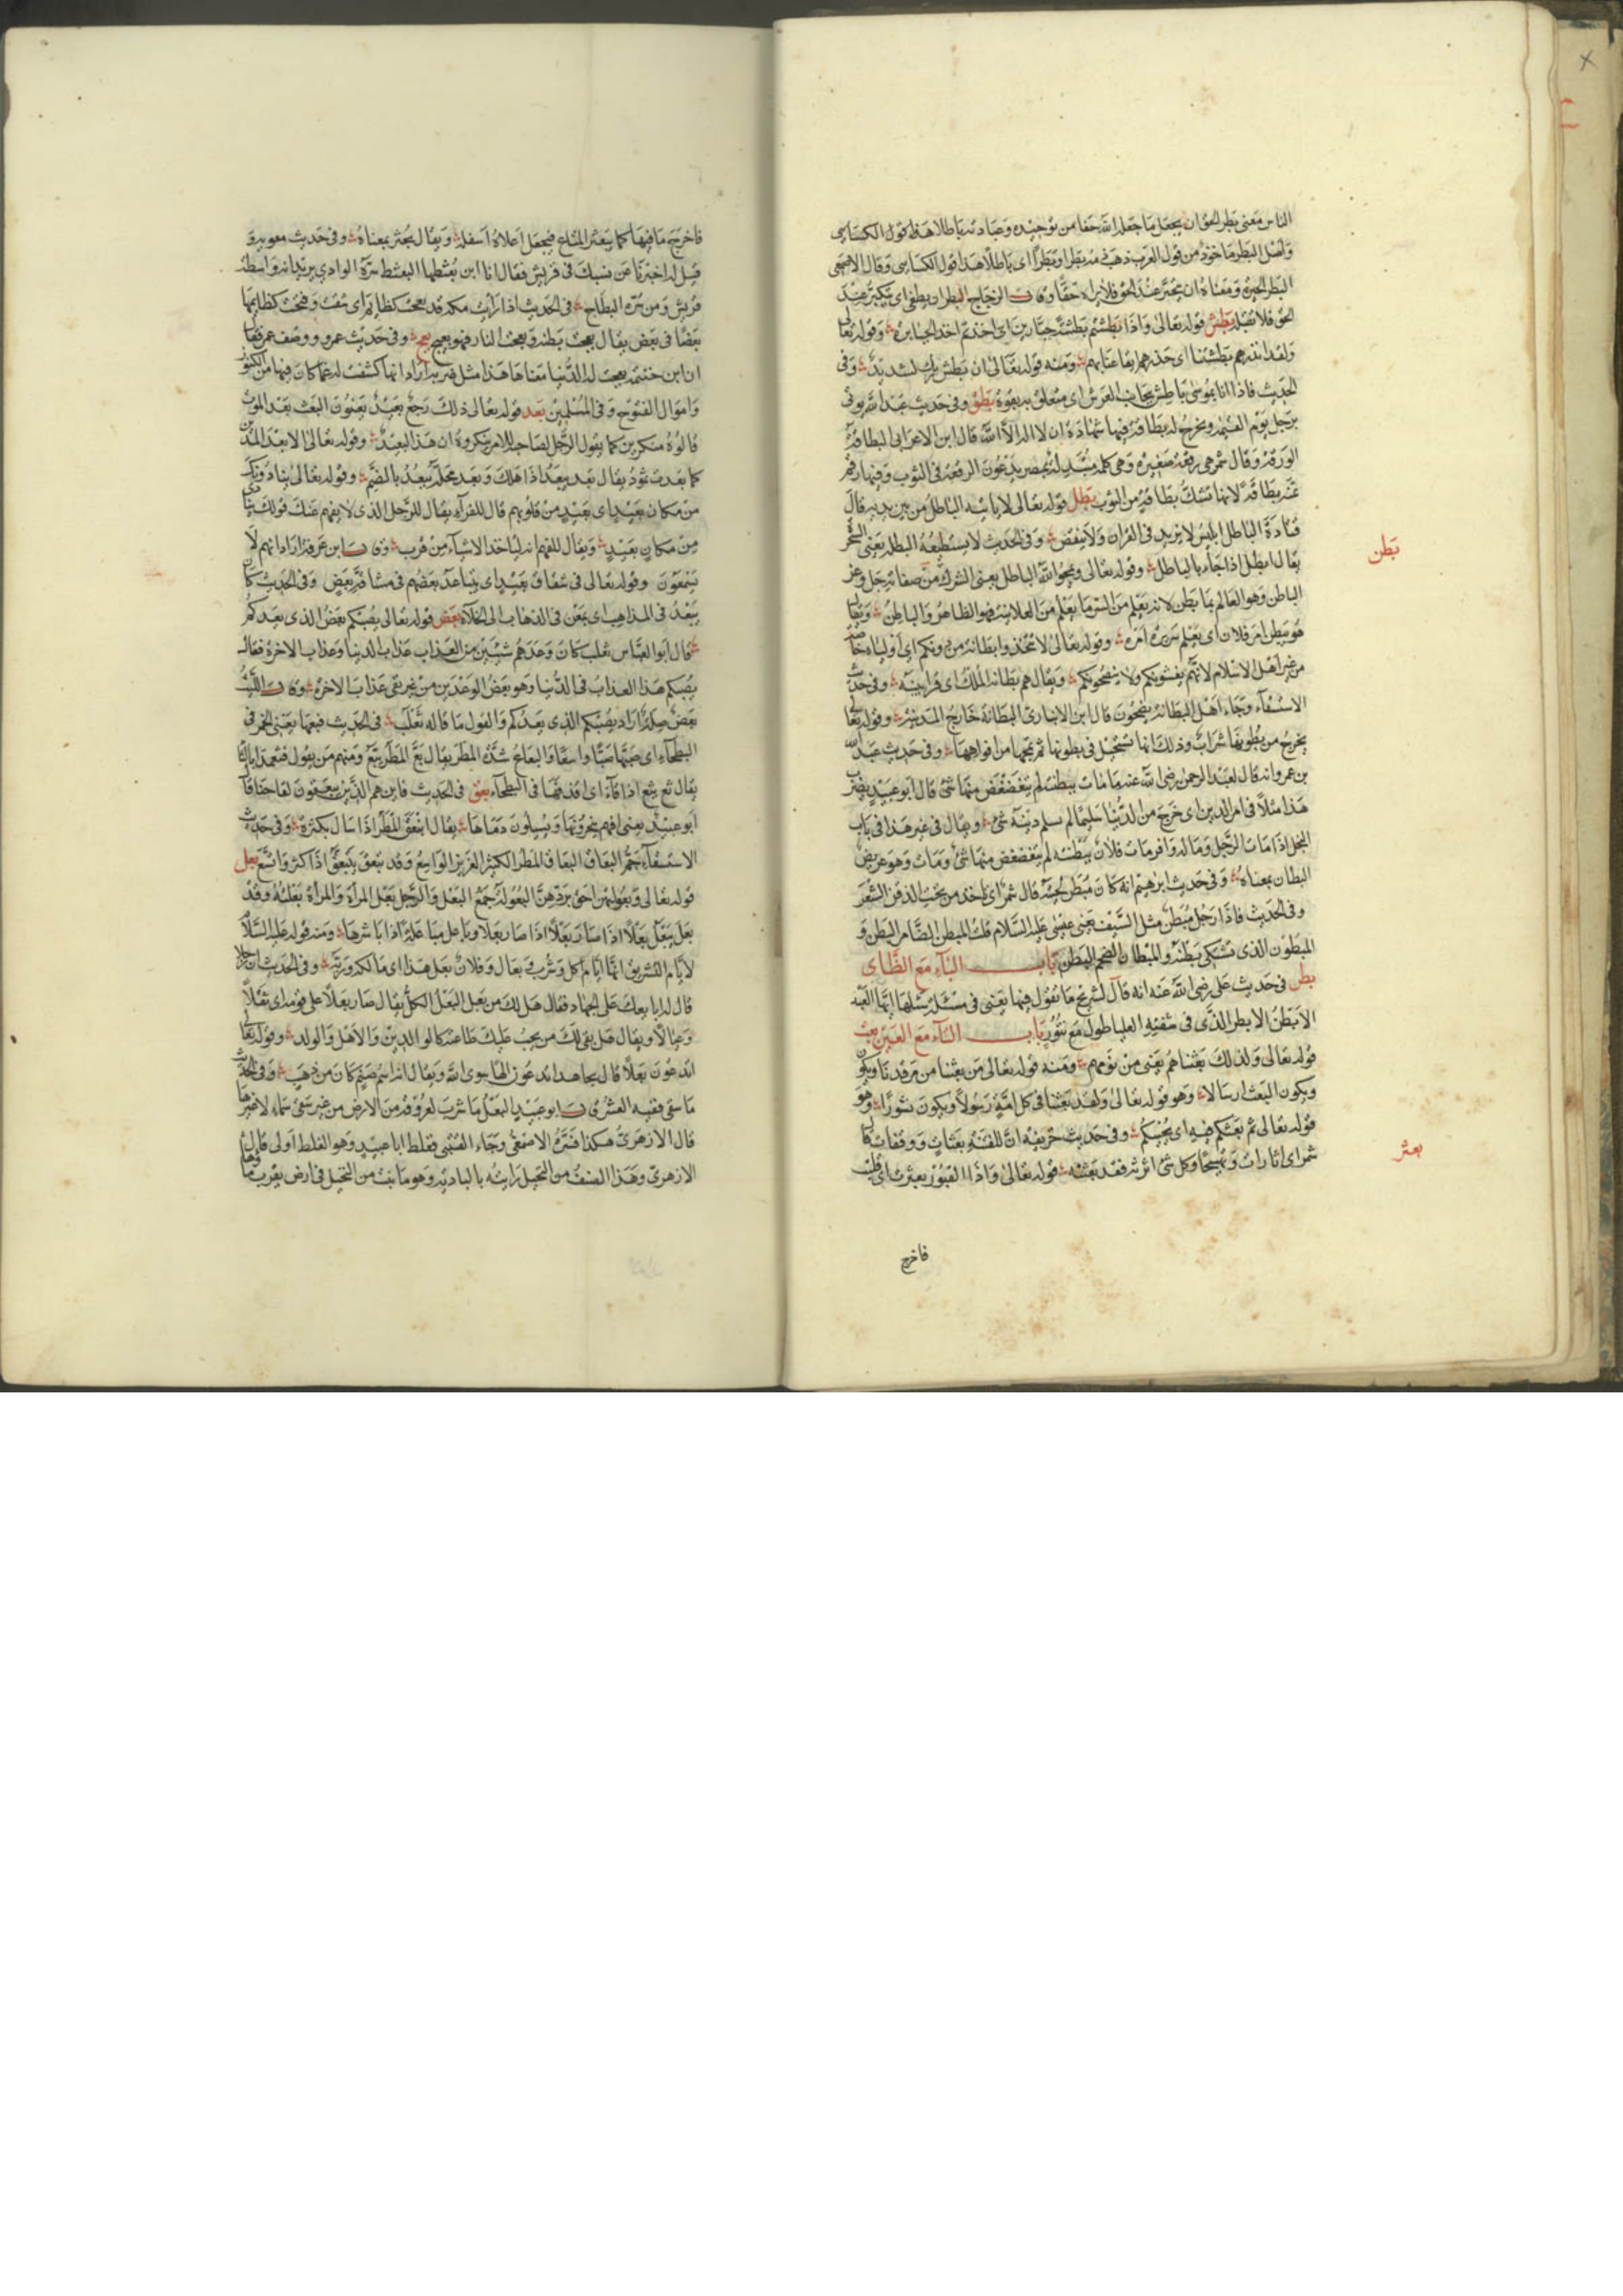 الناس معنى بطر الحق ان يجعل ما جعله الله حقا من توحيده وعبادته باطلا هذا قول الكسايى
وأصل البطر مأخوذ من قول العرب ذهب دمه بطرا وبطرا اى باطلا هذا قول الكسايى وقال الاصمعى
البطر الحيرة ومعناه ان يتحير عند الحق فلا يراه حقا وقال الزجاج البطر ان يطغى اى يتكبر عند
الحق فلا يقبله بطش قوله تعالى واذا بطشتم بطشتم جبارين اى اخذتم اخذ الجبابرة وقوله تعالى
ولقد انذرهم بطشتنا اى حذرهم ايقاعنا بهم ومنه قوله تعالى ان بطش ربك لشديد وفى
الحديث فاذا انا بموسى باطش بجانب العرش اى متعلق به بقوة بطق وفى حديث عبد الله يوتى
برجل يوم القيمة ويخرج له بطاقة فيها شهادة ان لا اله الا الله قال ابن الاعرابى البطاقة
الورقة وقال شمر هى رقعة صغيرة وهى كلمة مبتذلة بمصر يدعون الرقعة فى الثوب وفيها رقم
ثمنه بطاقة لانها تشك بطاقة من الثوب بطل قوله تعالى لا ياتيه الباطل من بين يديه قال
قتادة الباطل ابليس لا يزيد فى القران ولا ينقص وفى الحديث لا يستطيعه البطلة يعنى السحر
يقال ابطل اذا جاء بالباطل وقوله تعالى ويمحوا الله الباطل يعنى الشرك من صفاته جل وعز
بطن
الباطن وهو العالم بما بطن لانه يعلم من السر ما يعلم من العلانية فهو الظاهر والباطن ويقال
هو يبطن امر فلان اى يعلم سريرة امره وقوله تعالى لا تتخذوا بطانة من دونكم اى اولياء خاصة
من غير اهل الاسلام لانهم يغشونكم ولا ينصحونكم ويقال هم بطانة الملك اى قرابينه وفى حديث
الاستسقاء وجاء اهل البطانة يضجون قال ابن الانبارى البطانة خارج المدينة وقوله تعا
يخرج من بطونها شراب وذلك انها تستحيل فى بطونها ثم تمجها من افواهها وفى حديث عبد الله
بن عمرو انه قال لعبد الرحمن رضى الله عنهما مات ببطنته لم يتغضغض منها شئ قال ابو عبيد يضرب
هذا مثلا فى امر الدين اى خرج من الدنيا سليما لم يثلم دينه شئ ويقال فى غير هذا فى باب
البخل اذا مات الرجل وماله وافر مات فلان ببطنته لم يتغضغض منها شئ ومات وهو عريض
البطان بمعناه وفى حديث ابرهيم انه كان يبطن لحيته قال شمر اى ياخذ من تحت الذقن الشعر
وفى الحديث فاذا رجل مبطن مثل السيف يعنى عيسى عليه السلام قلت المبطن الضامر البطن و
المبطون الذى يشتكى بطنه والمبطان الضخم البطن باب الباء مع الظاى
بظر فى حديث على رضى الله عنه انه قال لشريح ما تقول فيها يعنى فى مسئلة سئلها ايها العبد
الابظر الابظر الذى فى شفته العليا طول مع نتو باب الباء مع العين بعث
قوله تعالى وكذلك بعثناهم يعنى من نومهم ومنه قوله تعالى من بعثنا من مرقدنا ويكون
ويكون البعث ارسالا وهو قوله تعالى ولقد بعثنا فى كل امة رسولا ويكون نشورا وهو
قوله تعالى ثم يبعثكم فيه اى يحييكم وفى حديث حذيفة ان للفتنة بعثات ووقفات قال
بعثر
شمر اى اثارات وتهييجا وكل شئ اثرته فقد بعثته قوله تعالى واذا القبور بعثرت اى قلبت
فاخرج
فاخرج ما فيها كما يبعثر المتاع فيجعل اعلاه اسفله ويقال بحثر بمعناه وفى حديث معوية و
قيل له اخبرنا عن نسبك فى قريش فقال انا ابن بعثطها البعثط سرة الوادى يريد انه واسطة
قريش ومن سرة البطاح بعج فى الحديث اذا رايت مكة قد بعجت كظايم اى شقت وفتحت كظايمها
بعضا فى بعض يقال بعجت بطنه وبعجت النار فهو بعيج وفى حديث عمرو ووصف عمر فقال
ان ابن حنتمة بعجت له الدنيا معناها هذا مثل ضربه اراد انها كشفت له عما كان فيها من الكنوز
واموال الفتوح وفى المسلمين بعد قوله تعالى ذلك رجع بعيد يعنون البعث بعد الموت
قالوه منكرين كما يقول الرجل لصاحبه للامر ينكروه ان هذا لبعيد وقوله تعالى الا بعدا لمدين
كما بعدت ثمود يقال بعد يبعد اذا هلك وبعد محله يبعد بالضم وقوله تعالى ينادون
من مكان بعيد اى بعيد من قلوبهم قال للفراء يقال للرجل الذى لا يفهم عنك قولك ينادى
من مكان بعيد ويقال للفهم انه لياخذ الاشياء من قرب وقال ابن عرفة اراد انهم لا
يسمعون وقوله تعالى فى شقاق بعيد اى يتباعد بعضهم فى مشاقة بعض وفى الحديث كان
يبعد فى المذاهب اى يمعن فى الذهاب الى الخلاء بعض قوله تعالى يصبكم بعض الذى يعدكم
قال ابو العباس ثعلب كان وعدهم شيئين من العذاب عذاب الدنيا وعذاب الاخرة فقال
يصبكم هذا العذاب فى الدنيا وهو بعض الوعدين من غير نفى عذاب الاخرة وقال الليث
بعض صلة اراد يصبكم الذى يعدكم والقول ما قاله ثعلب فى الحديث فبعها يعنى الخمر فى
البطحاء اى صبها صبا واسعا والبعاع شدة المطر يقال بع المطر يبع ومنهم من يقول فثعها بالثا
يقال ثع يثع اذا قاء اى قذفها فى البطحاء بعق فى الحديث فاين هم الذين يبعقون لقاحنا قال
ابو عبيد يعنى انهم ينحرونها ويسيلون دماءها يقال انبعق المطر اذا سال بكثرة وفى حديث
الاستسقاء جم البعاق البعاق المطر الكثير الغزير الواسع وقد تبعق يتبعق اذا كثر واتسع بعل
قوله تعالى وبعولتهن احق بردهن البعولة جمع البعل والرجل بعل المراة والمراة بعلته وقد
بعل يبعل بعلا اذا صار بعلا وباعل مباعلة اذا باشرها ومنه قوله عليه السلام
لايام التشريق انها ايام اكل وشرب وبعال وفلان بعل هذا اى مالكه وربه وفى الحديث ان رجلا
قال له ابايعك على الجهاد فقال هل لك من بعل البعل الكل يقال صار بعلا على قومه اى ثقلا
وعيالا ويقال هل بقى لك من يجب عليك طاعته كالوالدين والاهل والولد وقوله تعا
اتدعون بعلا قال مجاهد اتدعون الها سوى الله ويقال انه اسم صنم كان من ذهب وفى الحديث
ما سقى بعلا ففيه العشر قال ابو عبيد البعل ما شرب بعروقه من الارض من غير سقى سماء ولا غيرها
قال الازهرى هكذا فسره الاصمعى وجاء القتبى فغلط ابا عبيد وهو الغلط اولى قال
الازهرى وهذا الصنف من النخيل رايته بالبادية وهو ما ينبت من النخيل فى ارض يقرب ماوها